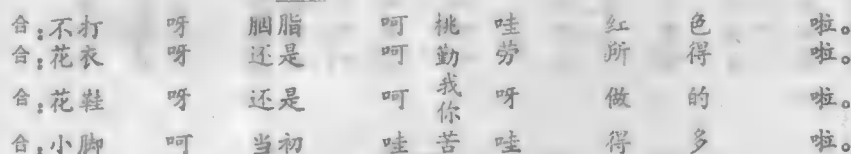 合：不打 呀 胭脂 呵 桃 哇 红 色 啦。
合：花衣 呀 还是 呵 勤 劳 所 得 啦。
合：花鞋 呀 还是 呵 我你 呀 做 的 啦。
合：小脚 呵 当初 哇 苦 哇 得 多 啦。